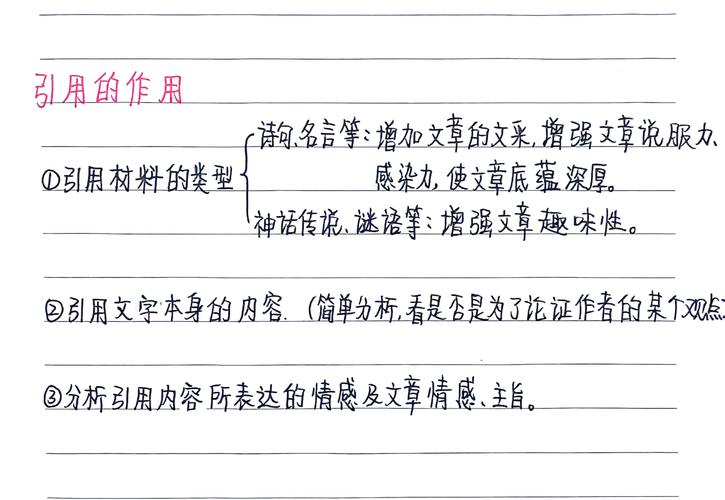 引用的作用
诗句、名言等：增加文章的文采，增强文章说服力、
①引用材料的类型
感染力，使文章底蕴深厚。
神话传说、谜语等：增强文章趣味性。
②引用文字本身的内容.（简单分析，看是否是为了论证作者的某个观点）
③分析引用内容所表达的情感及文章情感、主旨。